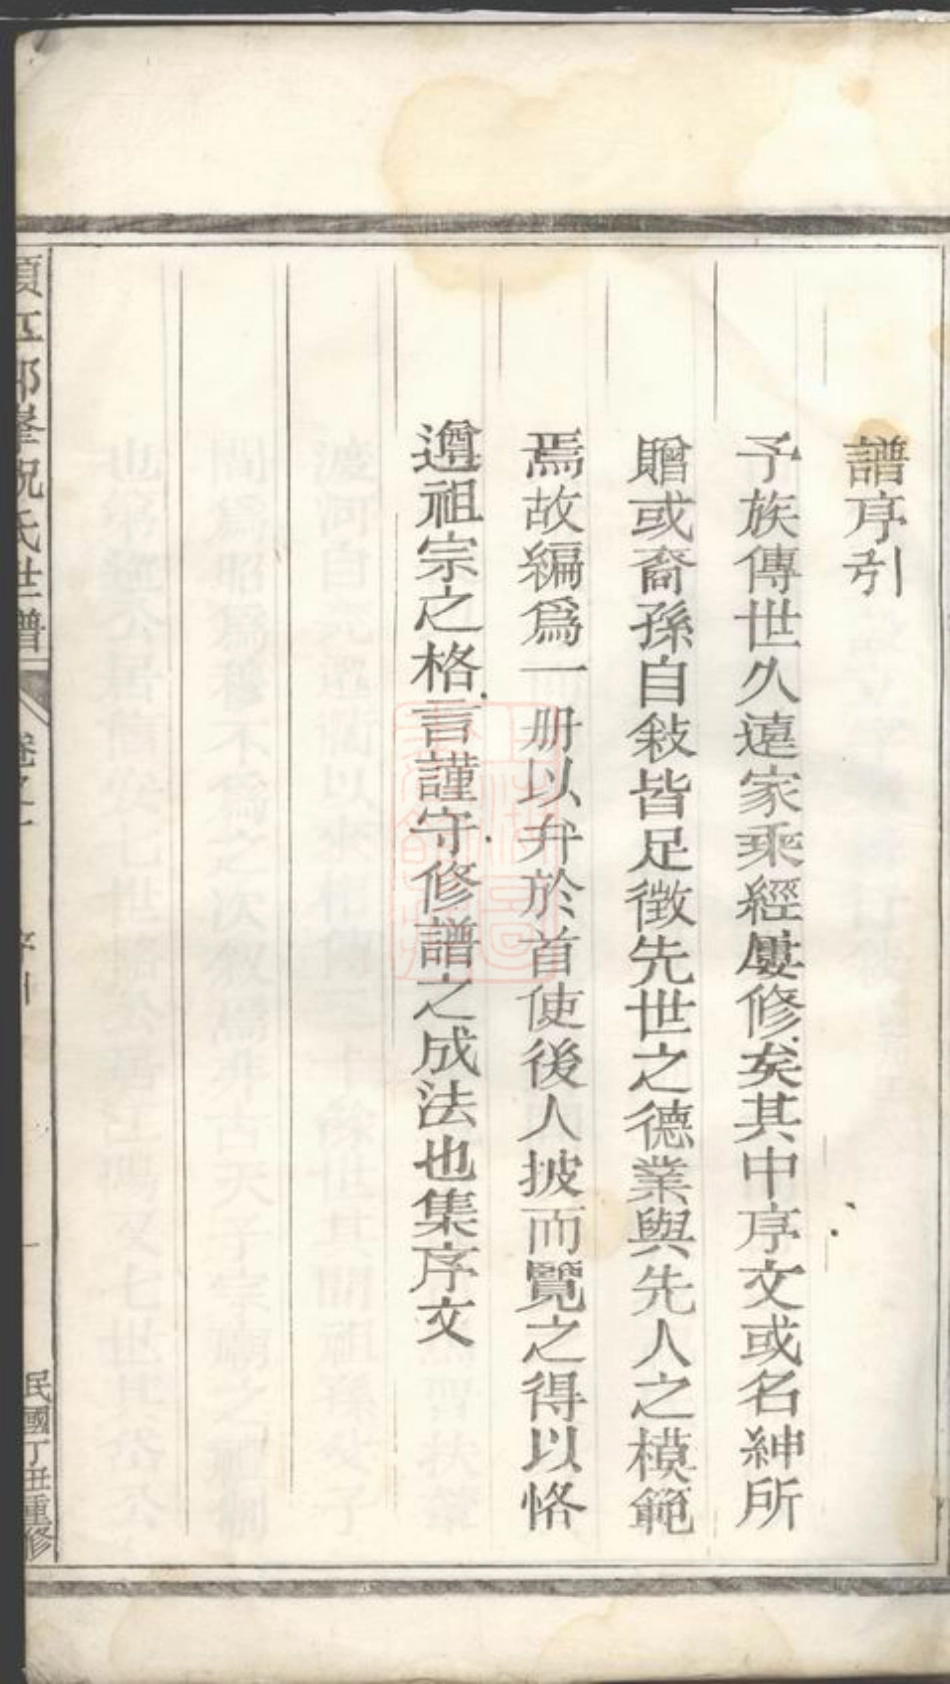 譜序引
予族傳世久遠家乘經屢修矣其中序文或名紳所
贈或裔孫自敍皆足徵先世之德業與先人之模範
焉故編爲一册以弁於首使後人披而覽之得以恪
遵祖宗之格言謹守修譜之成法也集序文
須江郎峯祝氏世譜 卷之一 序引 一 民國丁丑重修